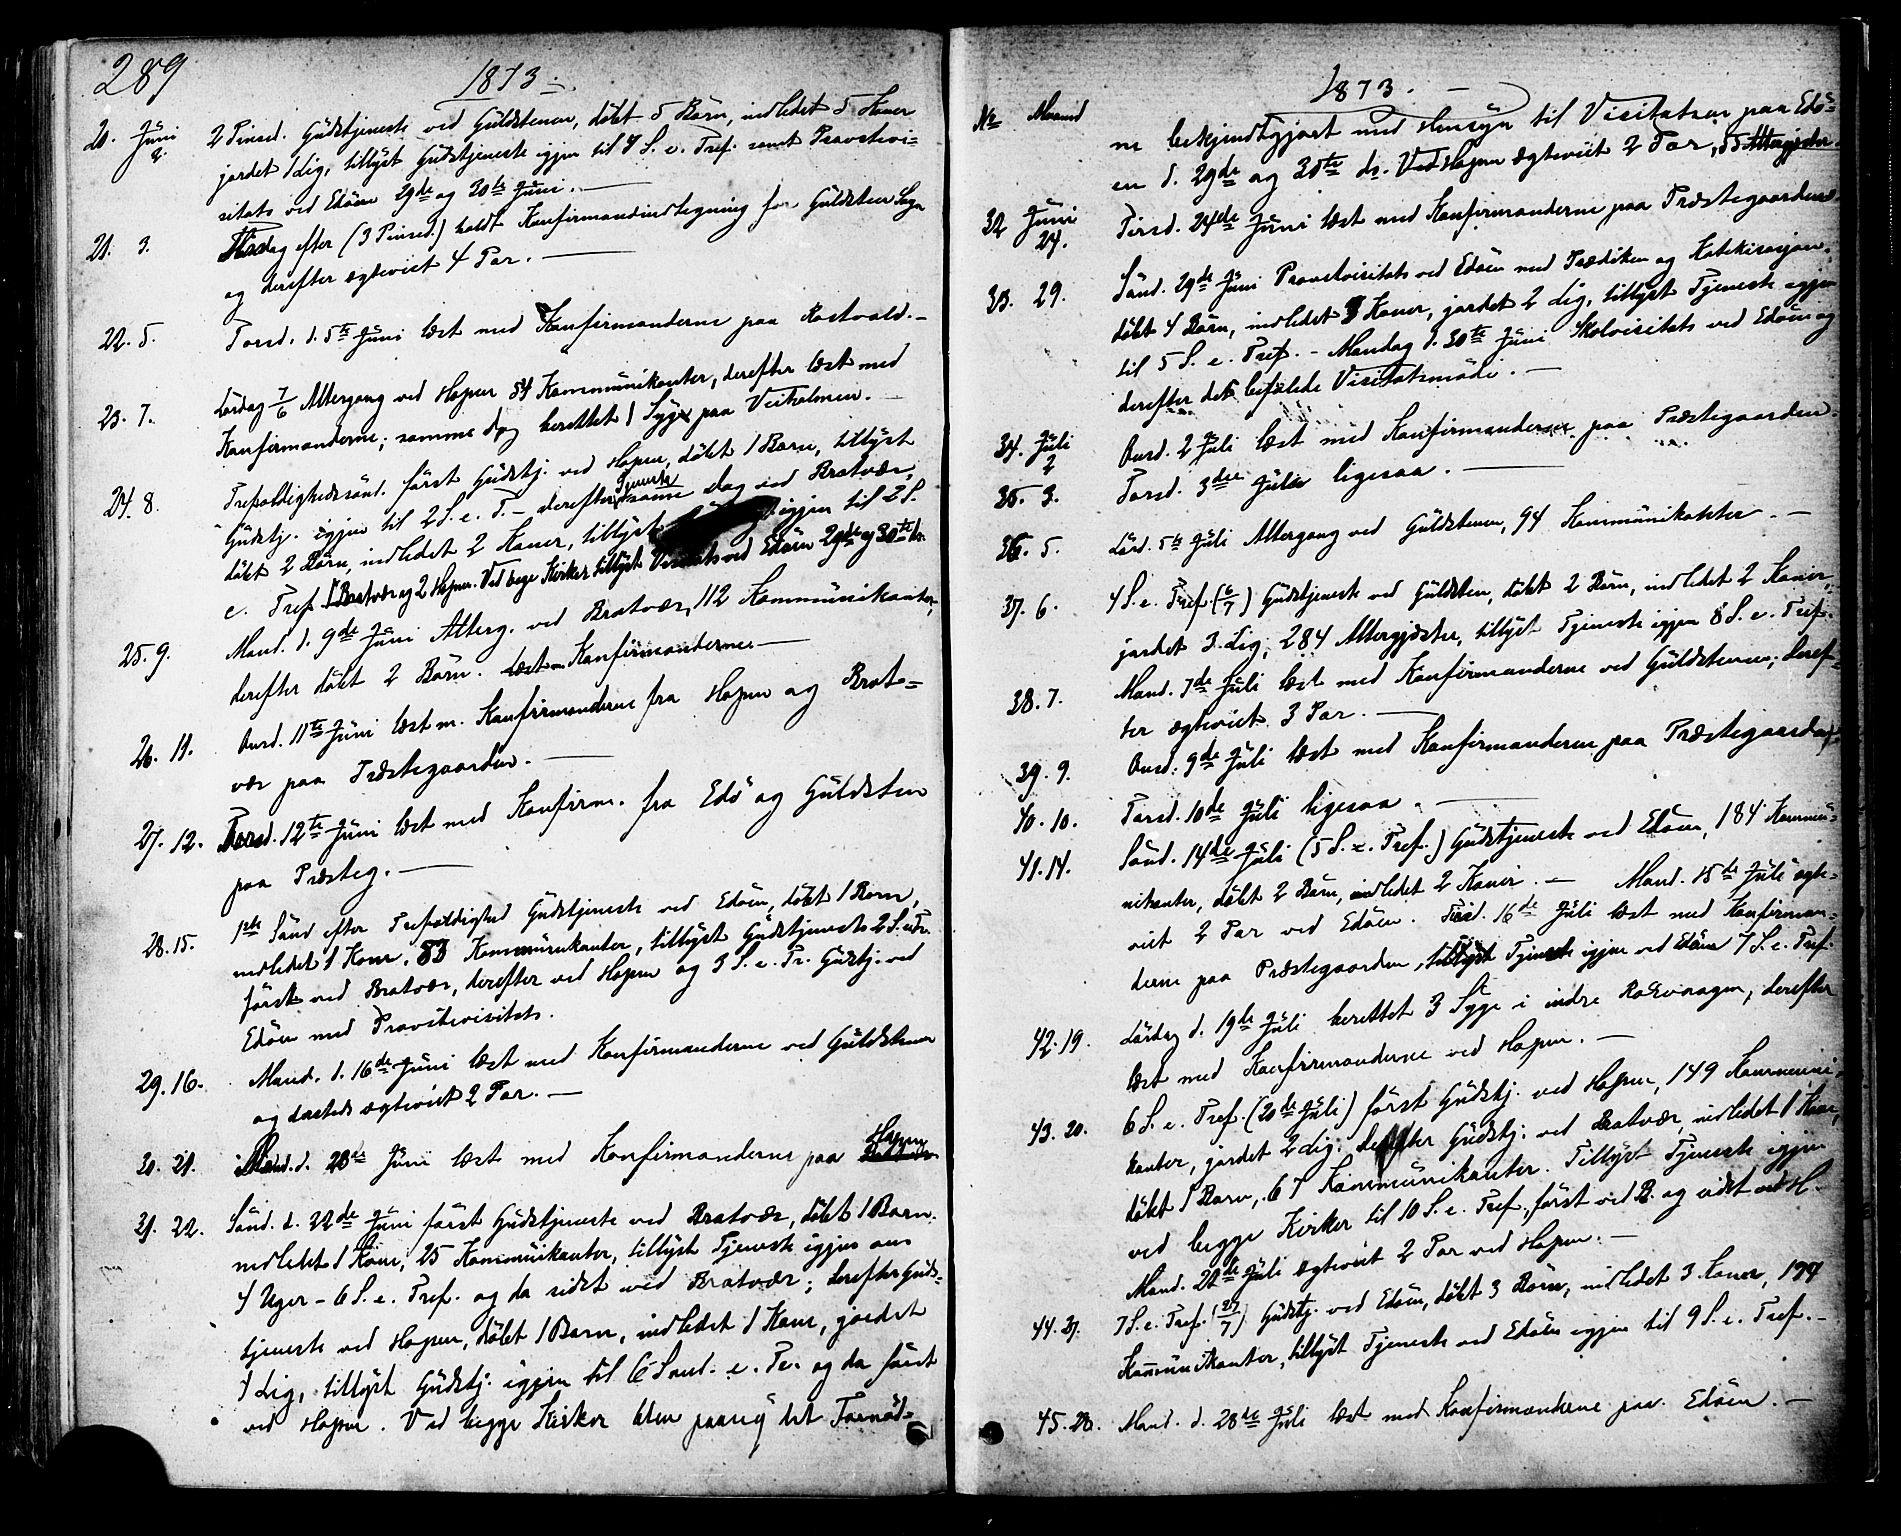 289
1873.
20. Juni 2. 2 Pinsd. Gudstjeneste ved Guldstenen, döbt 5 Börn, indledet 5 Koner
jordet 1 Lig, tillyst Gudstjeneste igjen til 4 S. e. Tref. samt Provstevi-
sitats ved Edöen 29de og 30te Juni.
21. 3. Tirsdag efter (3 Pinsed.) holdt Konfirmandindtegning for Guldsten Sogn
og derefter ægteviet 4 Par.
22. 5. Torsd. d. 5te Juni læst med Konfirmanderne paa Rostvold.
23. 7. Lördag 7/6 Altergang ved Hopen 54 Kommunikanter, derefter læst med
Konfirmanderne; samme Dag berettet 1 Syg paa Veiholmen.
24. 8. Trefoldighedssönd. först Gudstj. ved Hopen, döbt 1 Barn, tillyst
Gudstj. igjen til 2 S. e. T. - derefter Tjeneste samme Dag ved Bratvær,
döbt 2 Börn, indledet 2 Koner, tillyst igjen til 2 S.
e. Tref. 1 Bratvær og 2 Hopen. Ved begge Kirker tillyst Visitats ved Edöen 29de og 30te ds.
25. 9. Mand. d. 9de Juni Alterg. ved Bratvær, 112 Kommunikanter,
derefter döbt 2 Börn. læst m. Konfirmanderne
26. 11. Onsd. 11te Juni læst m. Konfirmanderne fra Hopen og Brat-
vær paa Præstegaarden.
27. 12. Torsd. 12te Juni læst med Konfirm. fra Edö og Guldsten
paa Præsteg.
28. 15. 1ste Sönd efter Trefoldighed Gudstjeneste ved Edöen, döbt 1 Barn,
indledet 1 Kone, 83 Kommunikanter, tillyst Gudstjeneste 2 S. e. Tr.
först ved Bratvær, derefter ved Hopen og 3 S. e. Tr. Gudstj. ved
Edöen med Provstevisitats.
29. 16. Mand. d. 16de Juni læst med Konfirmanderne ved Guldstenen
og sammesteds ægteviet 2 Par.
30. 21. d. Juni læst med Konfirmanderne paa Hopen
31. 22. Sönd. d. 22de Juni först Gudstjeneste ved Bratvær, döbt 1 Barn,
indledet 1 Kone, 25 Kommunikanter, tillyst Tjeneste igjen om
4 Uger - 6 S. e. Tref. og da sidst ved Bratvær; derefter Guds-
tjeneste ved Hopen, döbt 1 Barn, indledet 1 Kone, jordet
1 Lig, tillyst Gudstj. igjen til 6 Sönd. e. Tr. og da först
ved Hopen. Ved begge Kirker blev det Fornöd-
1873.
No Maaned
ne bekjendtgjort med Hensyn til Visitatsen paa Edö-
en d. 29de og 30te ds. Ved Hopen ægteviet 2 Par, 55 Altergjester.
32 Juni 24. Tirsd. 24de Juni læst med Konfirmanderne paa Præstegaarden.
33. 29. Sönd. 29de Juni Provstevisitats ved Edöen med Prædiken og Katekisasjon,
döbt 4 Börn, indledet 3 Koner, jordet 2 Lig, tillyst Tjeneste igjen
til 5 S. e. Tref. - Mandag d. 30te Juni Skolevisitats ved Edöen og
derefter det befalede Visitatsmöde.
34. Juli 2 Onsd. 2 Juli læst med Konfirmanderne paa Præstegaarden.
35. 3. Torsd. 3die Juli ligesaa.
36. 5. Lörd. 5te Juli Altergang ved Guldstenen, 94 Kommunikanter.
37. 6. 4 S. e. Tref. (6/7) Gudstjeneste ved Guldsten, döbt 2 Börn, indledet 2 Koner,
jordet 3 Lig, 284 Altergjester, tillyst Tjeneste igjen 8 S. e. Tref.
38. 7. Mand. 7de Juli læst med Konfirmanderne ved Guldstenen; deref-
ter ægteviet 3 Par.
39. 9. Onsd. 9de Juli læst med Konfirmanderne paa Præstegaarden.
40. 10. Torsd. 10de Juli ligesaa.
41. 14. Sönd. 14de Juli (5 S. e. Tref.) Gudstjeneste ved Edöen, 184 Kommu-
nikanter, döbt 2 Börn, indledet 2 Koner. - Mand. 15de Juli ægte-
viet 2 Par ved Edöen. Tirsd. 16de Juli læst med Konfirman-
derne paa Præstegaarden, tillyst Tjeneste igjen ved Edöen 7 S. e. Tref.
42. 19. Lördag d. 19de Juli berettet 3 Syge i indre Rosvaagen, derefter
læst med Konfirmanderne ved Hopen.
43. 20. 6 S. e. Tref. (20de Juli) först Gudstj. ved Hopen, 149 Kommuni-
kanter, jordet 2 Lig; derefter Gudstj. ved Bratvær, indledet 1 Kone,
döbt 1 Barn, 67 Kommunikanter. Tillyst Tjeneste igjen
ved begge Kirker til 10 S. e. Tref., först ved B. og sidst ved H.
Mand. 21de Juli ægteviet 2 Par ved Hopen.
44. 27. 7 S. e. Tref. (27/7) Gudstj. ved Edöen, döbt 3 Börn, indledet 3 Koner, 194
Kommunikanter, tillyst Tjeneste ved Edöen igjen til 9 S. e. Tref.
45. 28. Mand. d. 28de Juli læst med Konfirmanderne paa Edöen.